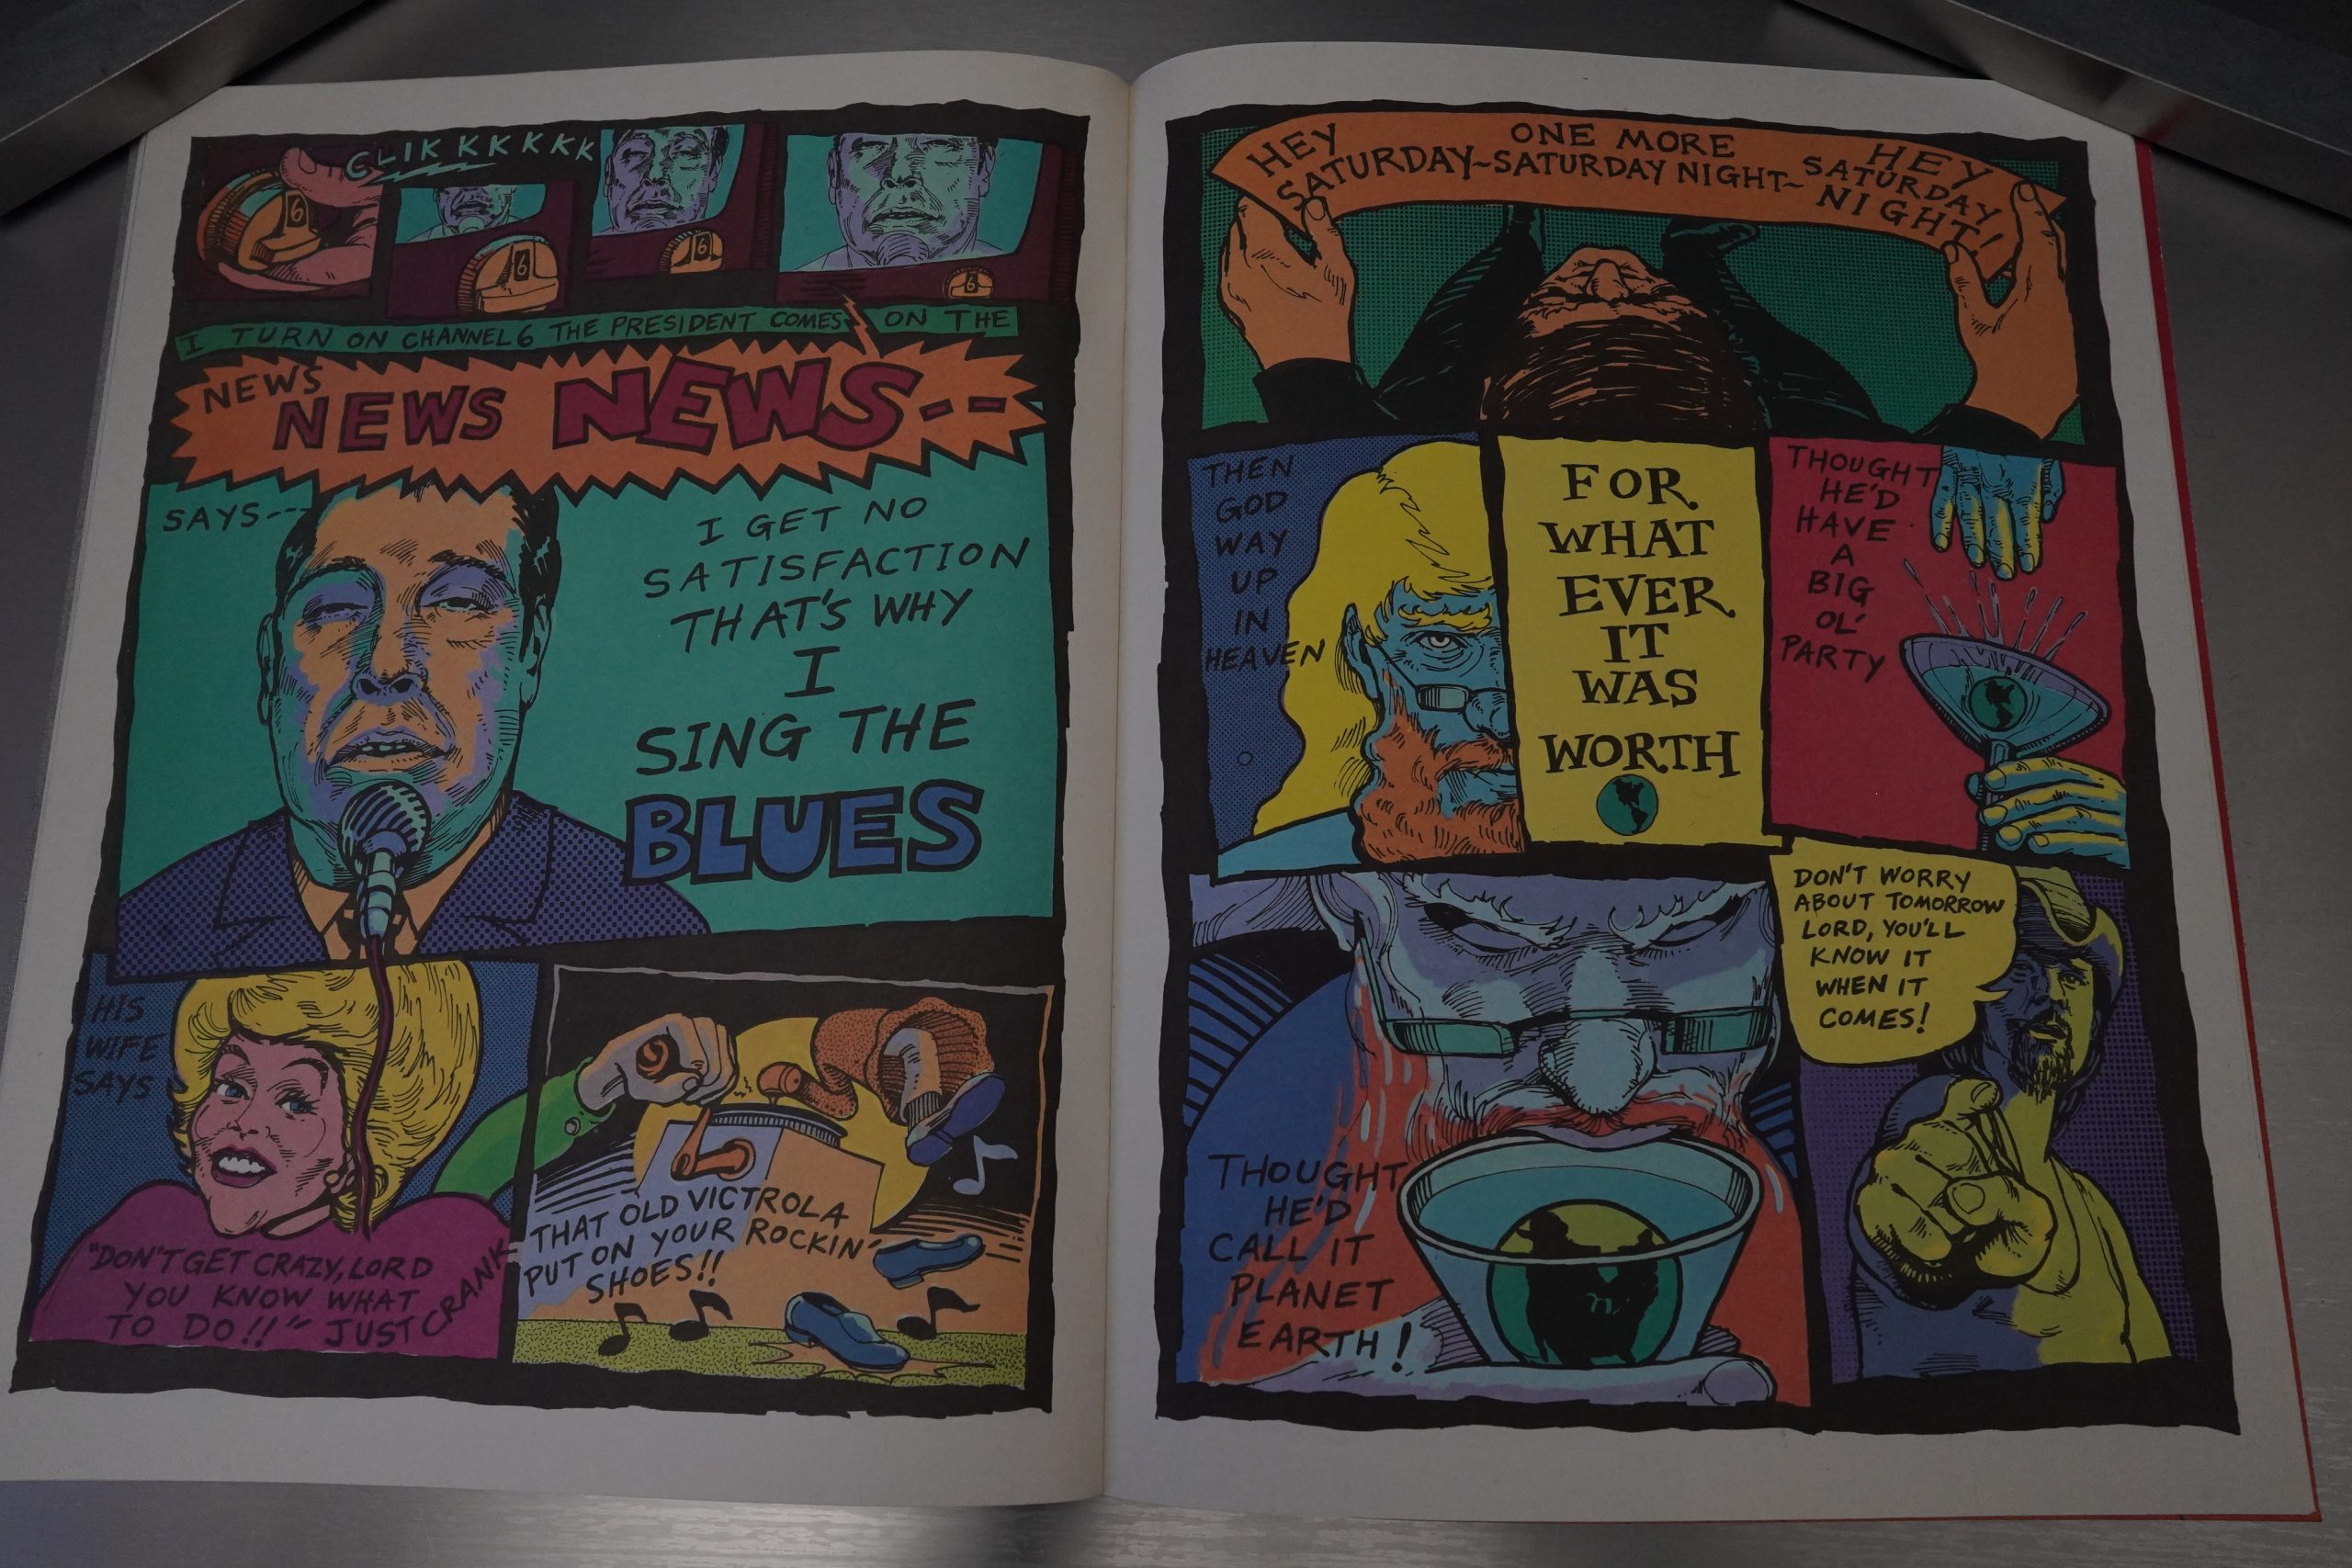 CLIK KKKKK
6
6
6
6
I TURN ON CHANNEL 6 THE PRESIDENT COMES ON THE
NEWS NEWS NEWS--
SAYS---
I GET NO
SATISFACTION
THAT'S WHY
I
SING THE
BLUES
HIS
WIFE
SAYS
"DON'T GET CRAZY, LORD
YOU KNOW WHAT
TO DO!!" JUST CRANK
THAT OLD VICTROLA
PUT ON YOUR ROCKIN'
SHOES!!
HEY
SATURDAY~
ONE MORE
SATURDAY NIGHT~
HEY
SATURDAY
NIGHT!
THEN
GOD
WAY
UP
IN
HEAVEN
FOR
WHAT
EVER
IT
WAS
WORTH
THOUGHT
HE'D
HAVE
A
BIG
OL'
PARTY
THOUGHT
HE'D
CALL IT
PLANET
EARTH!
DON'T WORRY
ABOUT TOMORROW
LORD, YOU'LL
KNOW IT
WHEN IT
COMES!